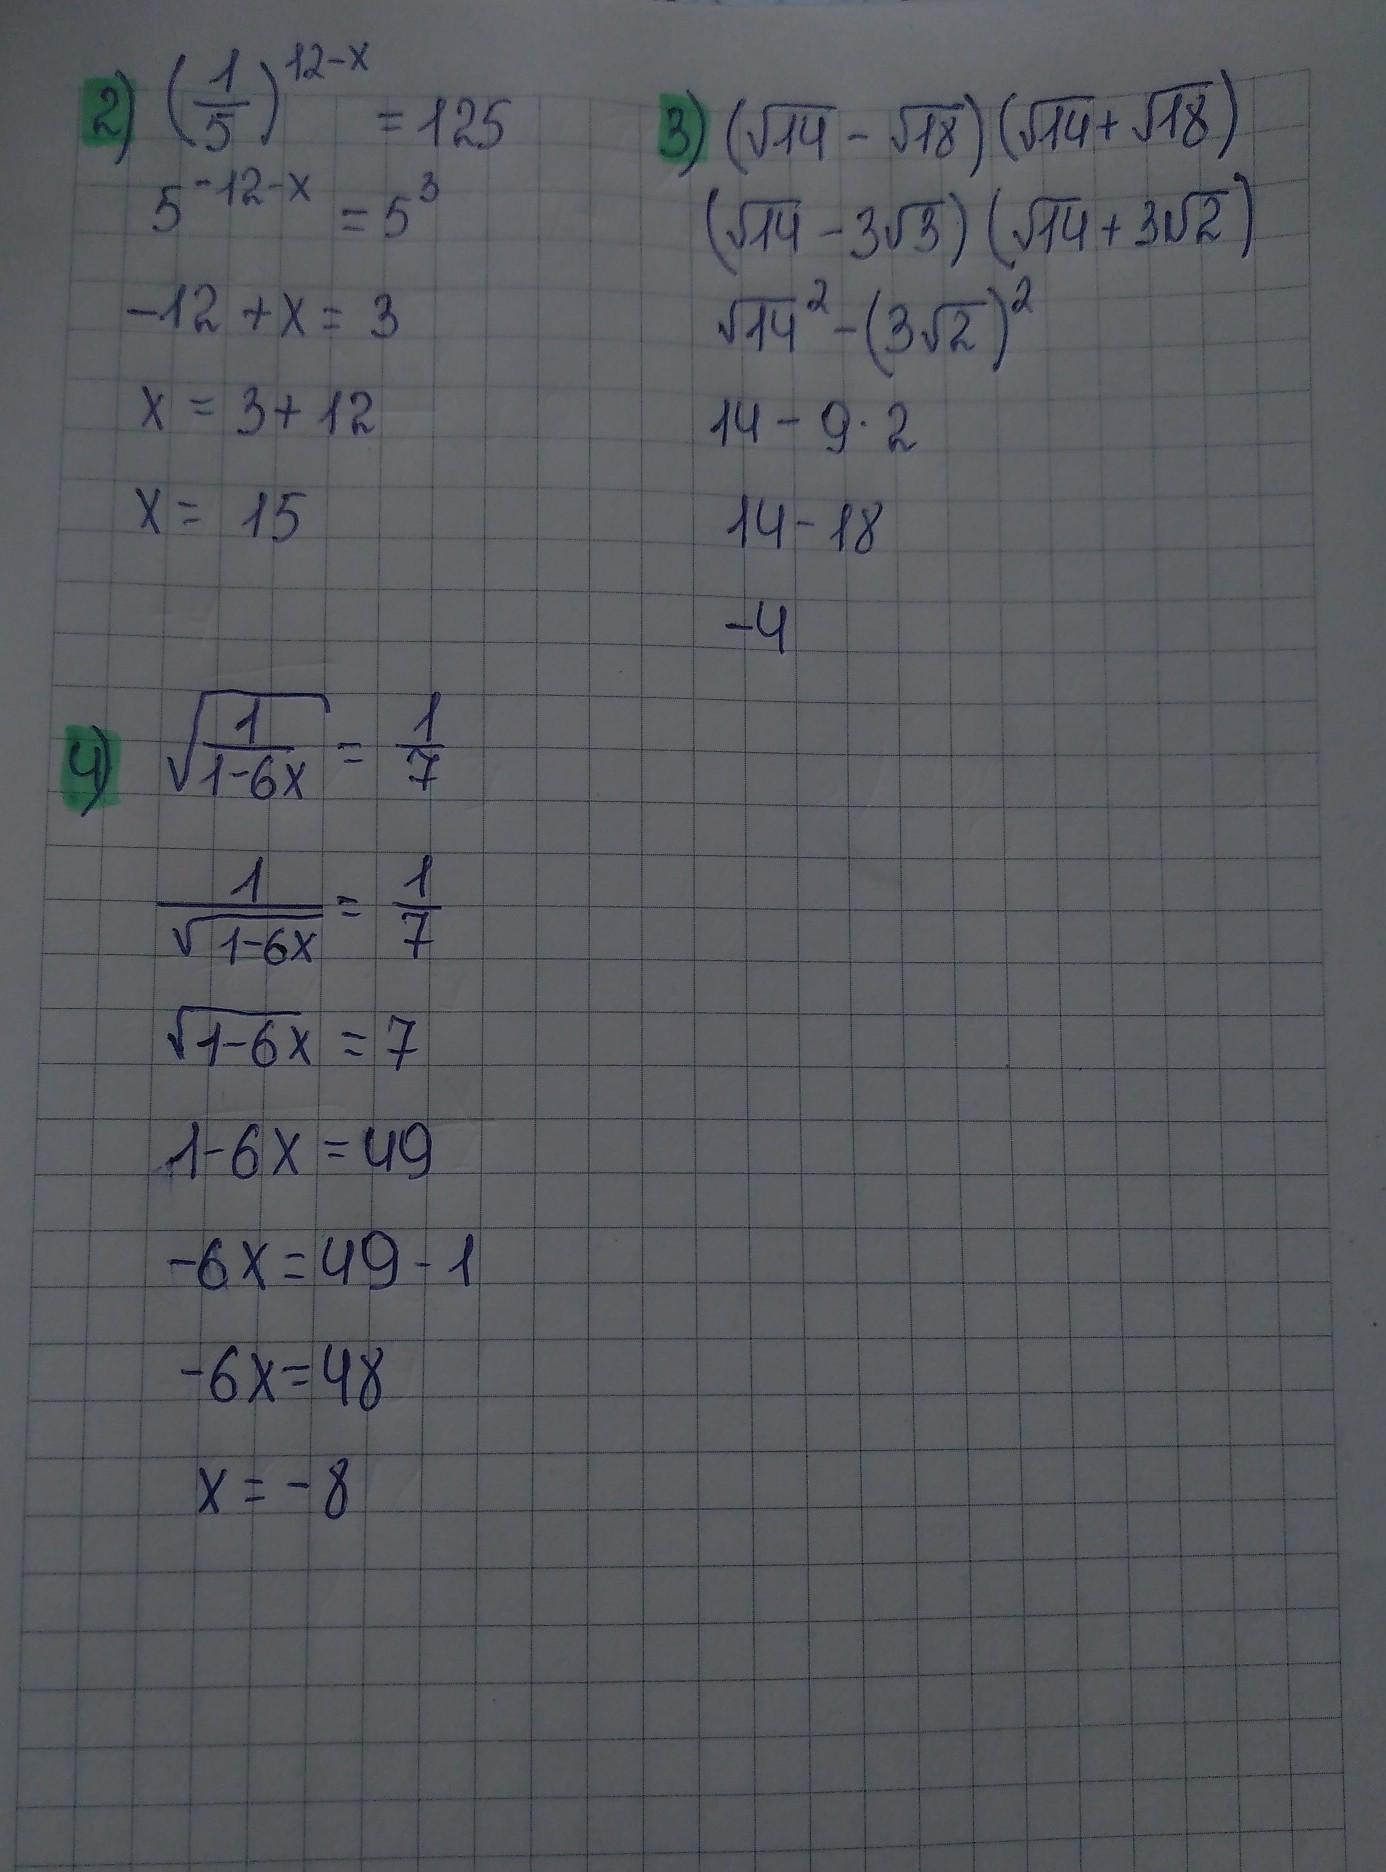 2) (1/5)^(12-x) = 125
5^(-12-x) = 5^3
-12 + x = 3
x = 3 + 12
x = 15
3) (√14 - √18)(√14 + √18)
(√14 - 3√3)(√14 + 3√2)
√14² - (3√2)²
14 - 9·2
14 - 18
-4
4) √(1/(1-6x)) = 1/7
1/√(1-6x) = 1/7
√(1-6x) = 7
1-6x = 49
-6x = 49 - 1
-6x = 48
x = -8